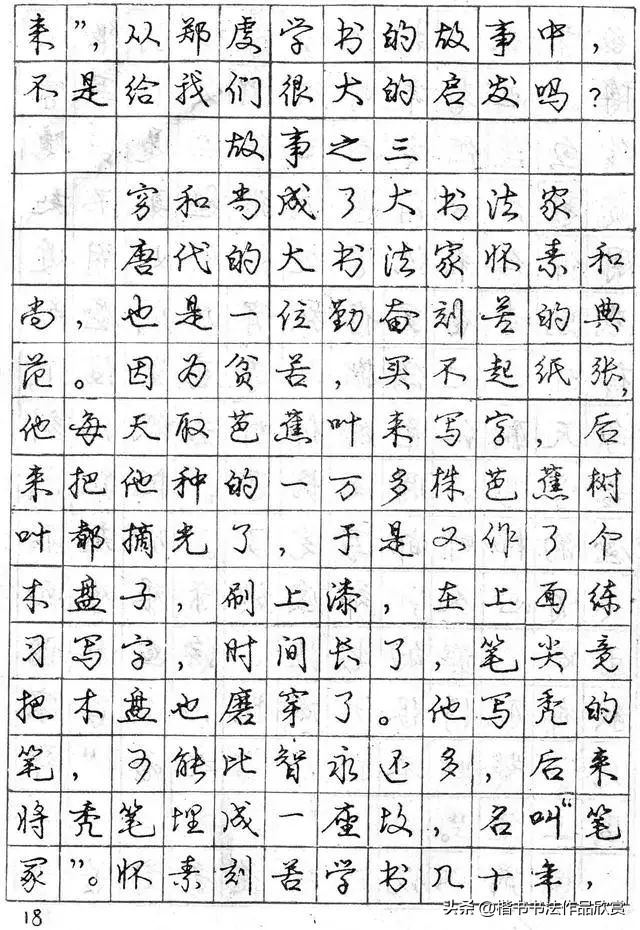 来”，从郑虔学书的故事中，
不是给我们很大的启发吗？
故事之三
穷和尚成了大书法家
唐代的大书法家怀素和
尚，也是一位勤奋刻苦的典
范。因为贫苦，买不起纸张，
他每天取芭蕉叶来写字，后
来把他种的一万多株芭蕉树
叶都摘光了，于是又作了个
木盘子，刷上漆，在上面练
习写字，时间长了，笔尖竟
把木盘也磨穿了。他写秃的
笔，可能比智永还多，后来
将秃笔埋成一座坟，名叫“笔
冢”。怀素刻苦学书几十年，
18
头条@楷书书法作品欣赏